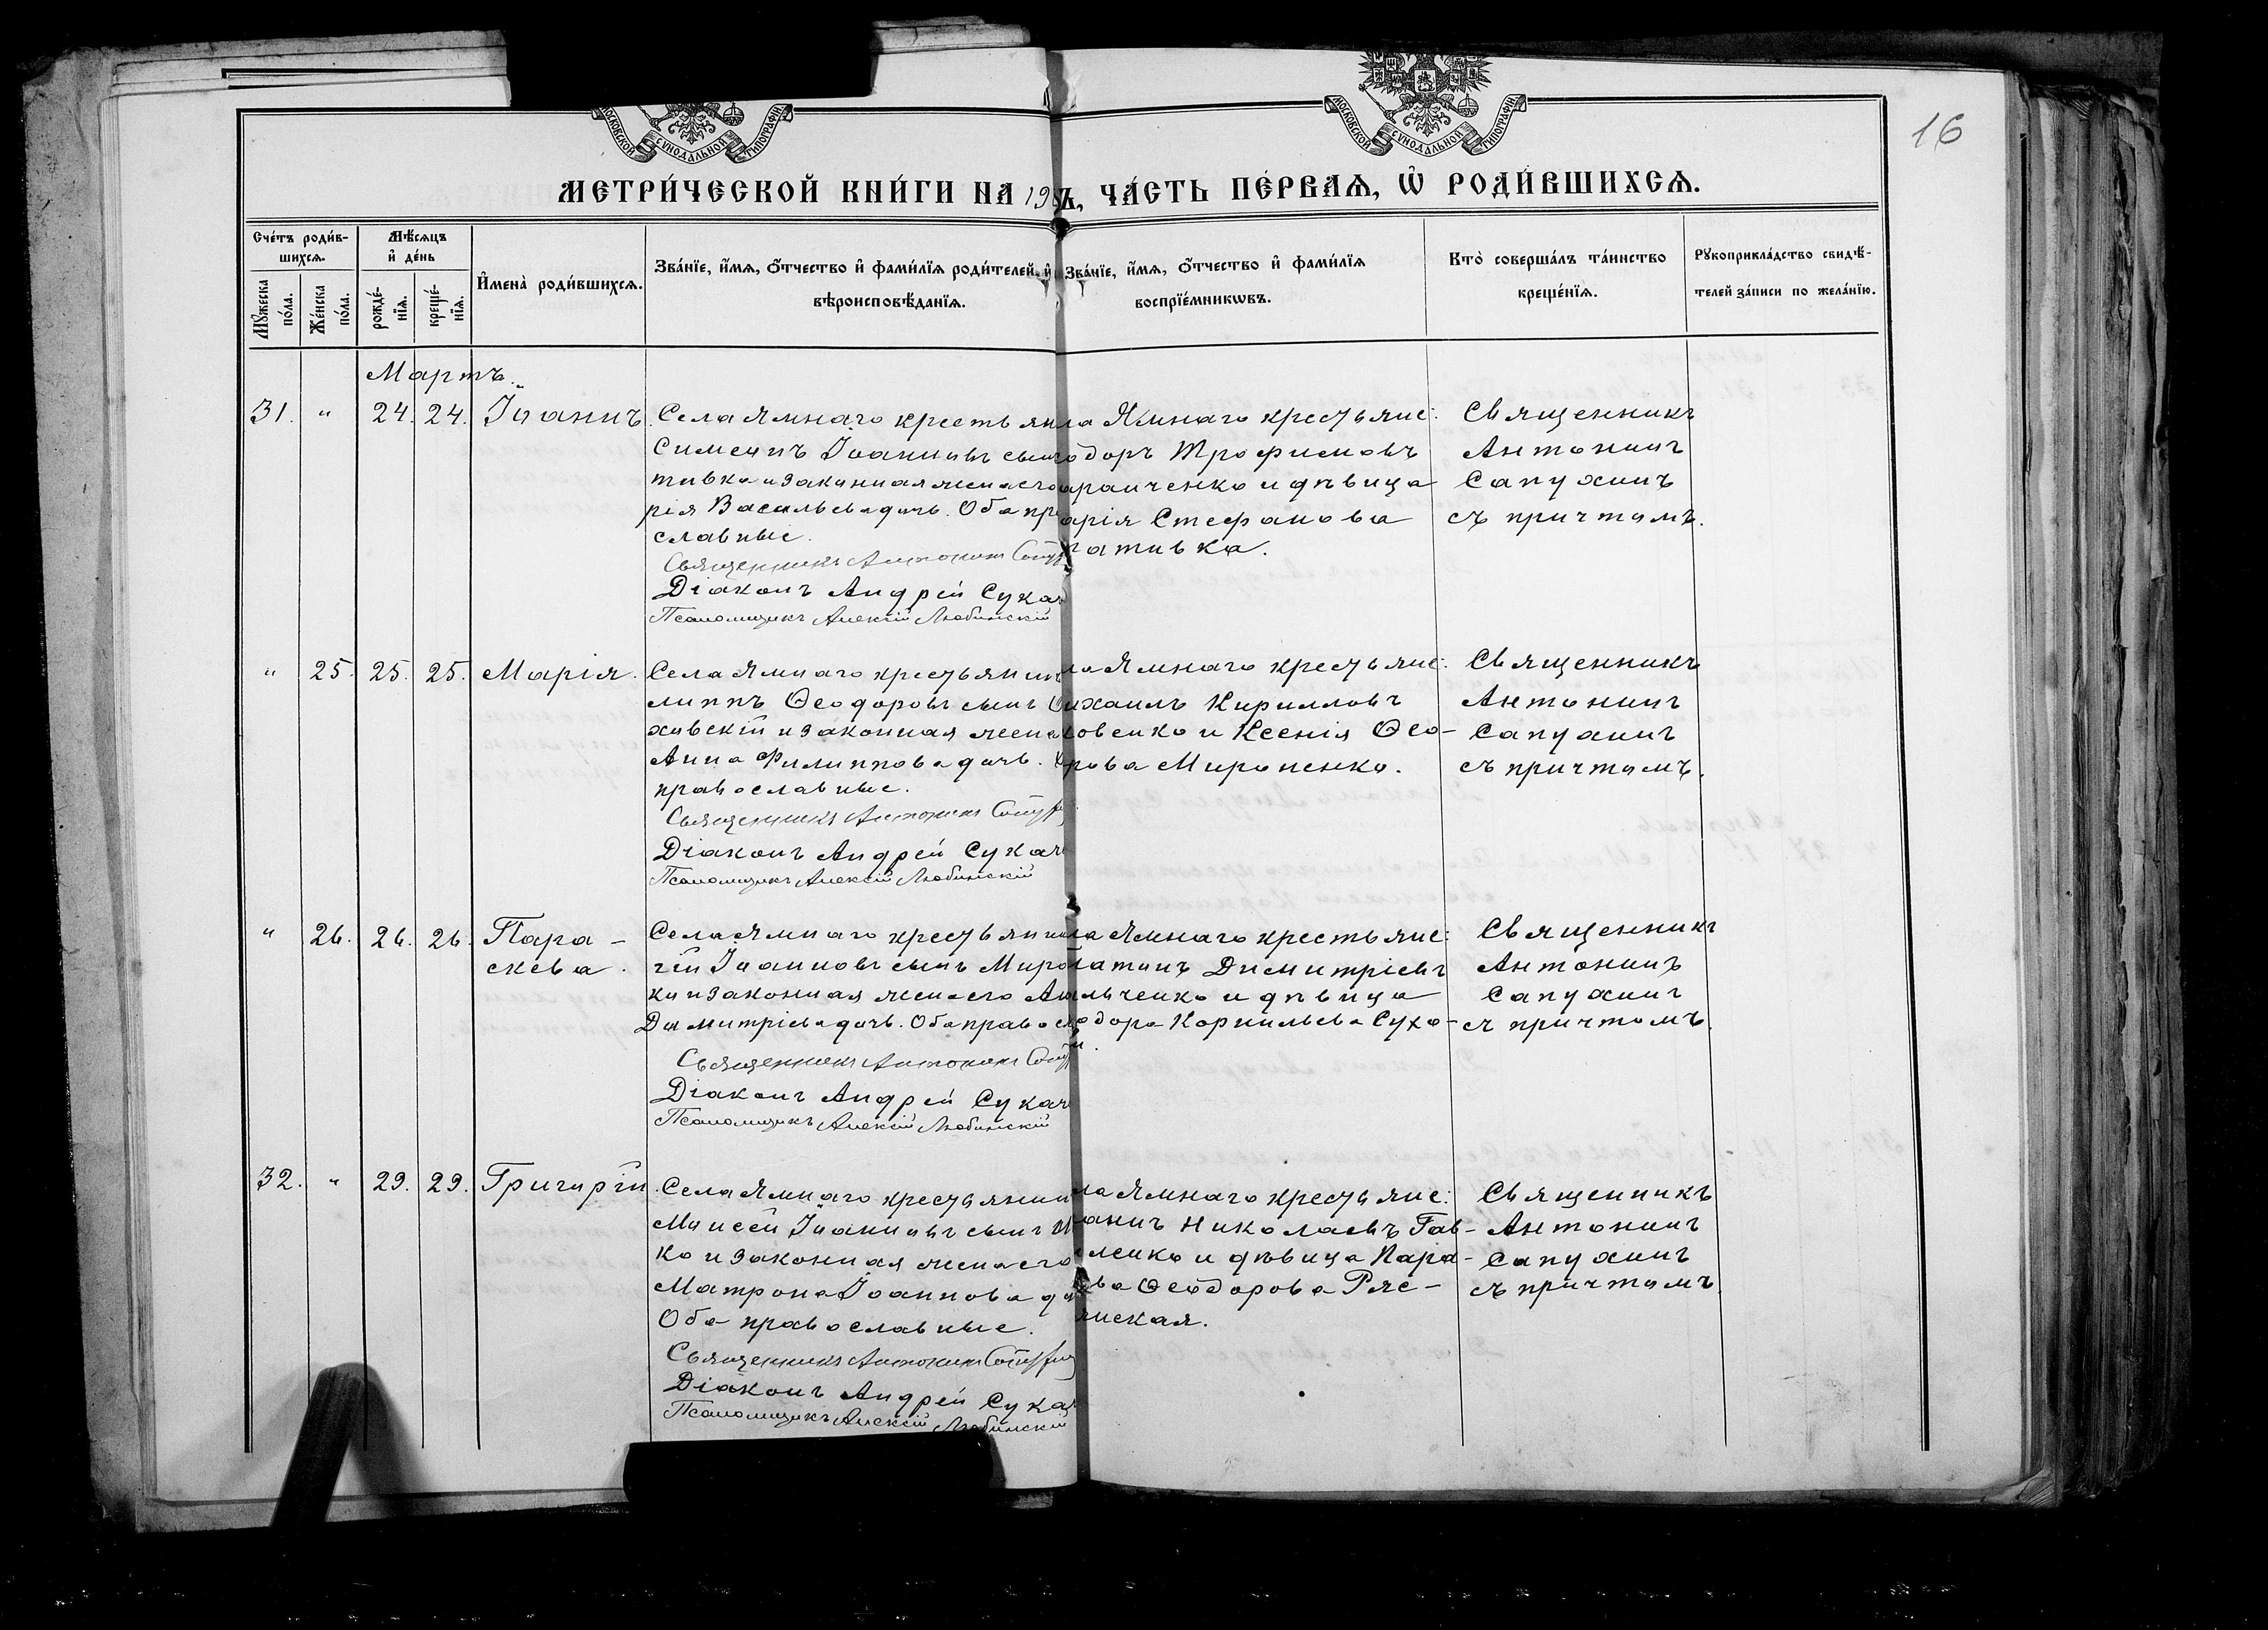 16
МОСКОВСКОЙ СѴНОДАЛЬНОЙ ТИПОГРАФІИ
МОСКОВСКОЙ СѴНОДАЛЬНОЙ ТИПОГРАФІИ
МЕТРИ́ЧЕСКОЙ КНИ́ГИ НА 19 Ъ, ЧА́СТЬ ПЕ́РВАѦ, Ѽ РОДИ́ВШИХСѦ.
Сче́тъ роди́в-
шихсѧ.
Мꙋ́жеска по́ла.
Же́нска по́ла.
Мѣ́сѧцъ
и҆ де́нь
рожде́-нїѧ.
креще́-нїѧ.
И҆мена̀ роди́вшихсѧ.
Зва́нїе, и҆́мѧ, ѻ҆́тчество и҆ фами́лїѧ роди́телей, и҆
вѣроисповѣ́данїѧ.
Зва́нїе, и҆́мѧ, ѻ҆́тчество и҆ фами́лїѧ
воспрїе́мникѡвъ.
Кто̀ соверша́лъ та́инство
креще́нїѧ.
Рꙋкоприкла́дство свидѣ́-
телей за́писи по жела́нїю.
Мартъ.
31. " 24. 24. Іоаннъ.
Села Ямнаго крестьян
Симеонъ Іоанновъ сынъ
тивка и законная жена его
рія Васильева дочь. Оба пра
славные.
Священникъ Антонинъ Сапух
Діаконъ Андрей Сукач
Псаломщикъ Алексій Любинскій
ла Ямнаго крестьяне:
одоръ Трофимовъ
аранченко и дѣвица
арія Стефанова
ативка.
Священникъ
Антонинъ
Сапухинъ
съ причтомъ.
" 25. 25. 25. Марія.
Села Ямнаго крестьянин
липпъ Ѳеодоровъ сынъ
ховскій и законная жена
Анна Филиппова дочь.
православные.
Священникъ Антонинъ Сапух
Діаконъ Андрей Сукач
Псаломщикъ Алексій Любинскій
ла Ямнаго крестьяне:
ихаилъ Кирилловъ
ковенко и Ксенія Ѳео-
рова Мироненко.
Священникъ
Антонинъ
Сапухинъ
съ причтомъ.
" 26. 26. 26. Пара-
скева.
Села Ямнаго крестьянин
гій Іоанновъ сынъ Миро
ко и законная жена его Ан
Димитріева дочь. Оба правос
Священникъ Антонинъ Сапух
Діаконъ Андрей Сукач
Псаломщикъ Алексій Любинскій
ла Ямнаго крестьяне:
латонъ Димитріевъ
льченко и дѣвица
одора Корнильева Сухо-
Священникъ
Антонинъ
Сапухинъ
съ причтомъ.
32. " 29. 29. Григорій.
Села Ямнаго крестьянин
Моисей Іоанновъ сынъ
ко и законная жена его
Матрона Іоаннова до
Оба православные.
Священникъ Антонинъ Сапухин
Діаконъ Андрей Сукач
Псаломщикъ Алексій Любинскій
ла Ямнаго крестьяне:
аннъ Николаевъ Гав-
ленко и дѣвица Пара-
ва Ѳеодорова Ряс-
янская.
Священникъ
Антонинъ
Сапухинъ
съ причтомъ.